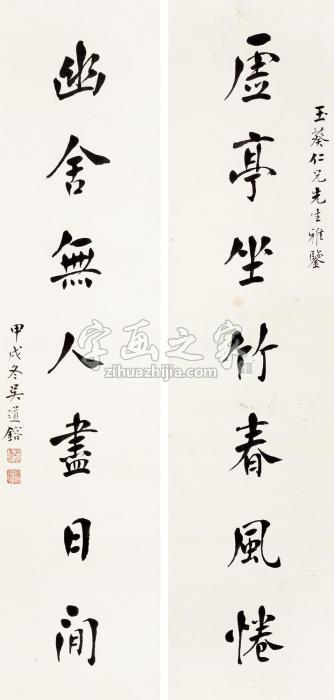 玉葵仁兄先生雅鑒
虛亭坐竹春風惓
幽舍無人盡日閒
甲戌冬吳道鎔
字画之家
zihuazhijia.com